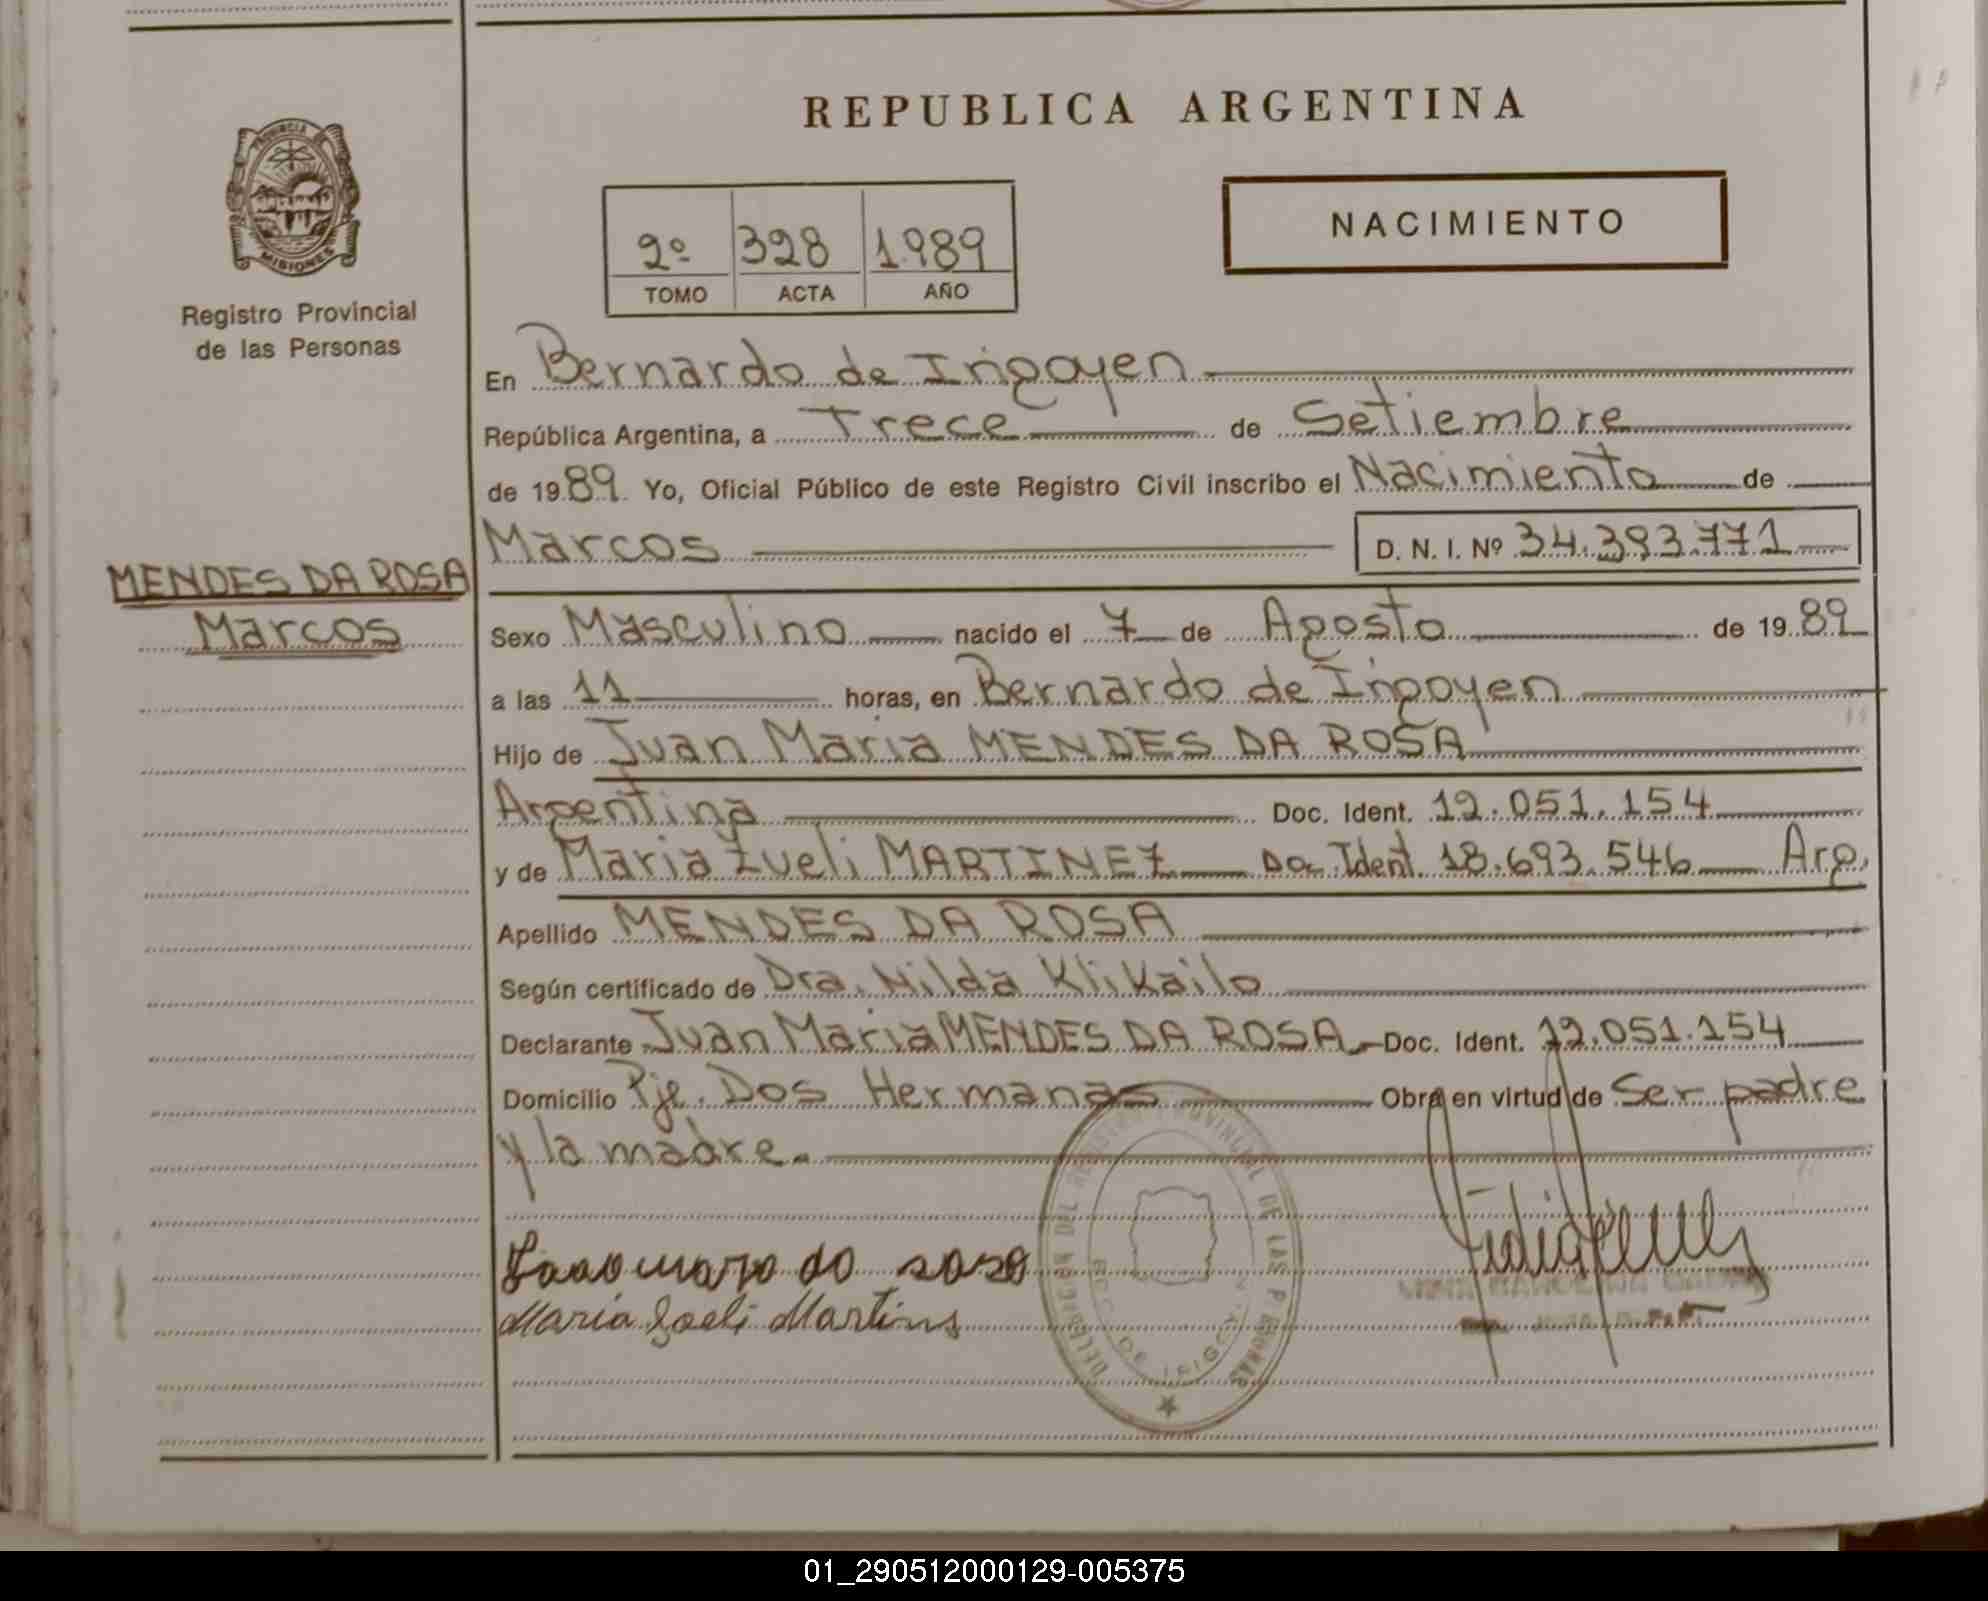 REPUBLICA ARGENTINA
PROVINCIA DE
MISIONES
Registro Provincial
de las Personas
2º 328 1.989
TOMO ACTA AÑO
NACIMIENTO
En Bernardo de Irigoyen
República Argentina, a Trece de Setiembre
de 1989 Yo, Oficial Público de este Registro Civil inscribo el Nacimiento de
Marcos D. N. I. Nº 34.393.771
MENDES DA ROSA
Marcos
Sexo Masculino nacido el 7 de Agosto de 1989
a las 11 horas, en Bernardo de Irigoyen
Hijo de Juan Maria MENDES DA ROSA
Argentina Doc. Ident. 12.051.154
y de Maria Zueli MARTINEZ Doc. Ident. 18.693.546 Arg.
Apellido MENDES DA ROSA
Según certificado de Dra. Nilda Klikailo
Declarante Juan Maria MENDES DA ROSA Doc. Ident. 12.051.154
Domicilio Pje. Dos Hermanas Obra en virtud de Ser padre
y la madre.
DELEGACION DEL REGISTRO PROVINCIAL DE LAS PERSONAS
BDO. DE IRIGOYEN
Maria Zoeli Martins
01_290512000129-005375